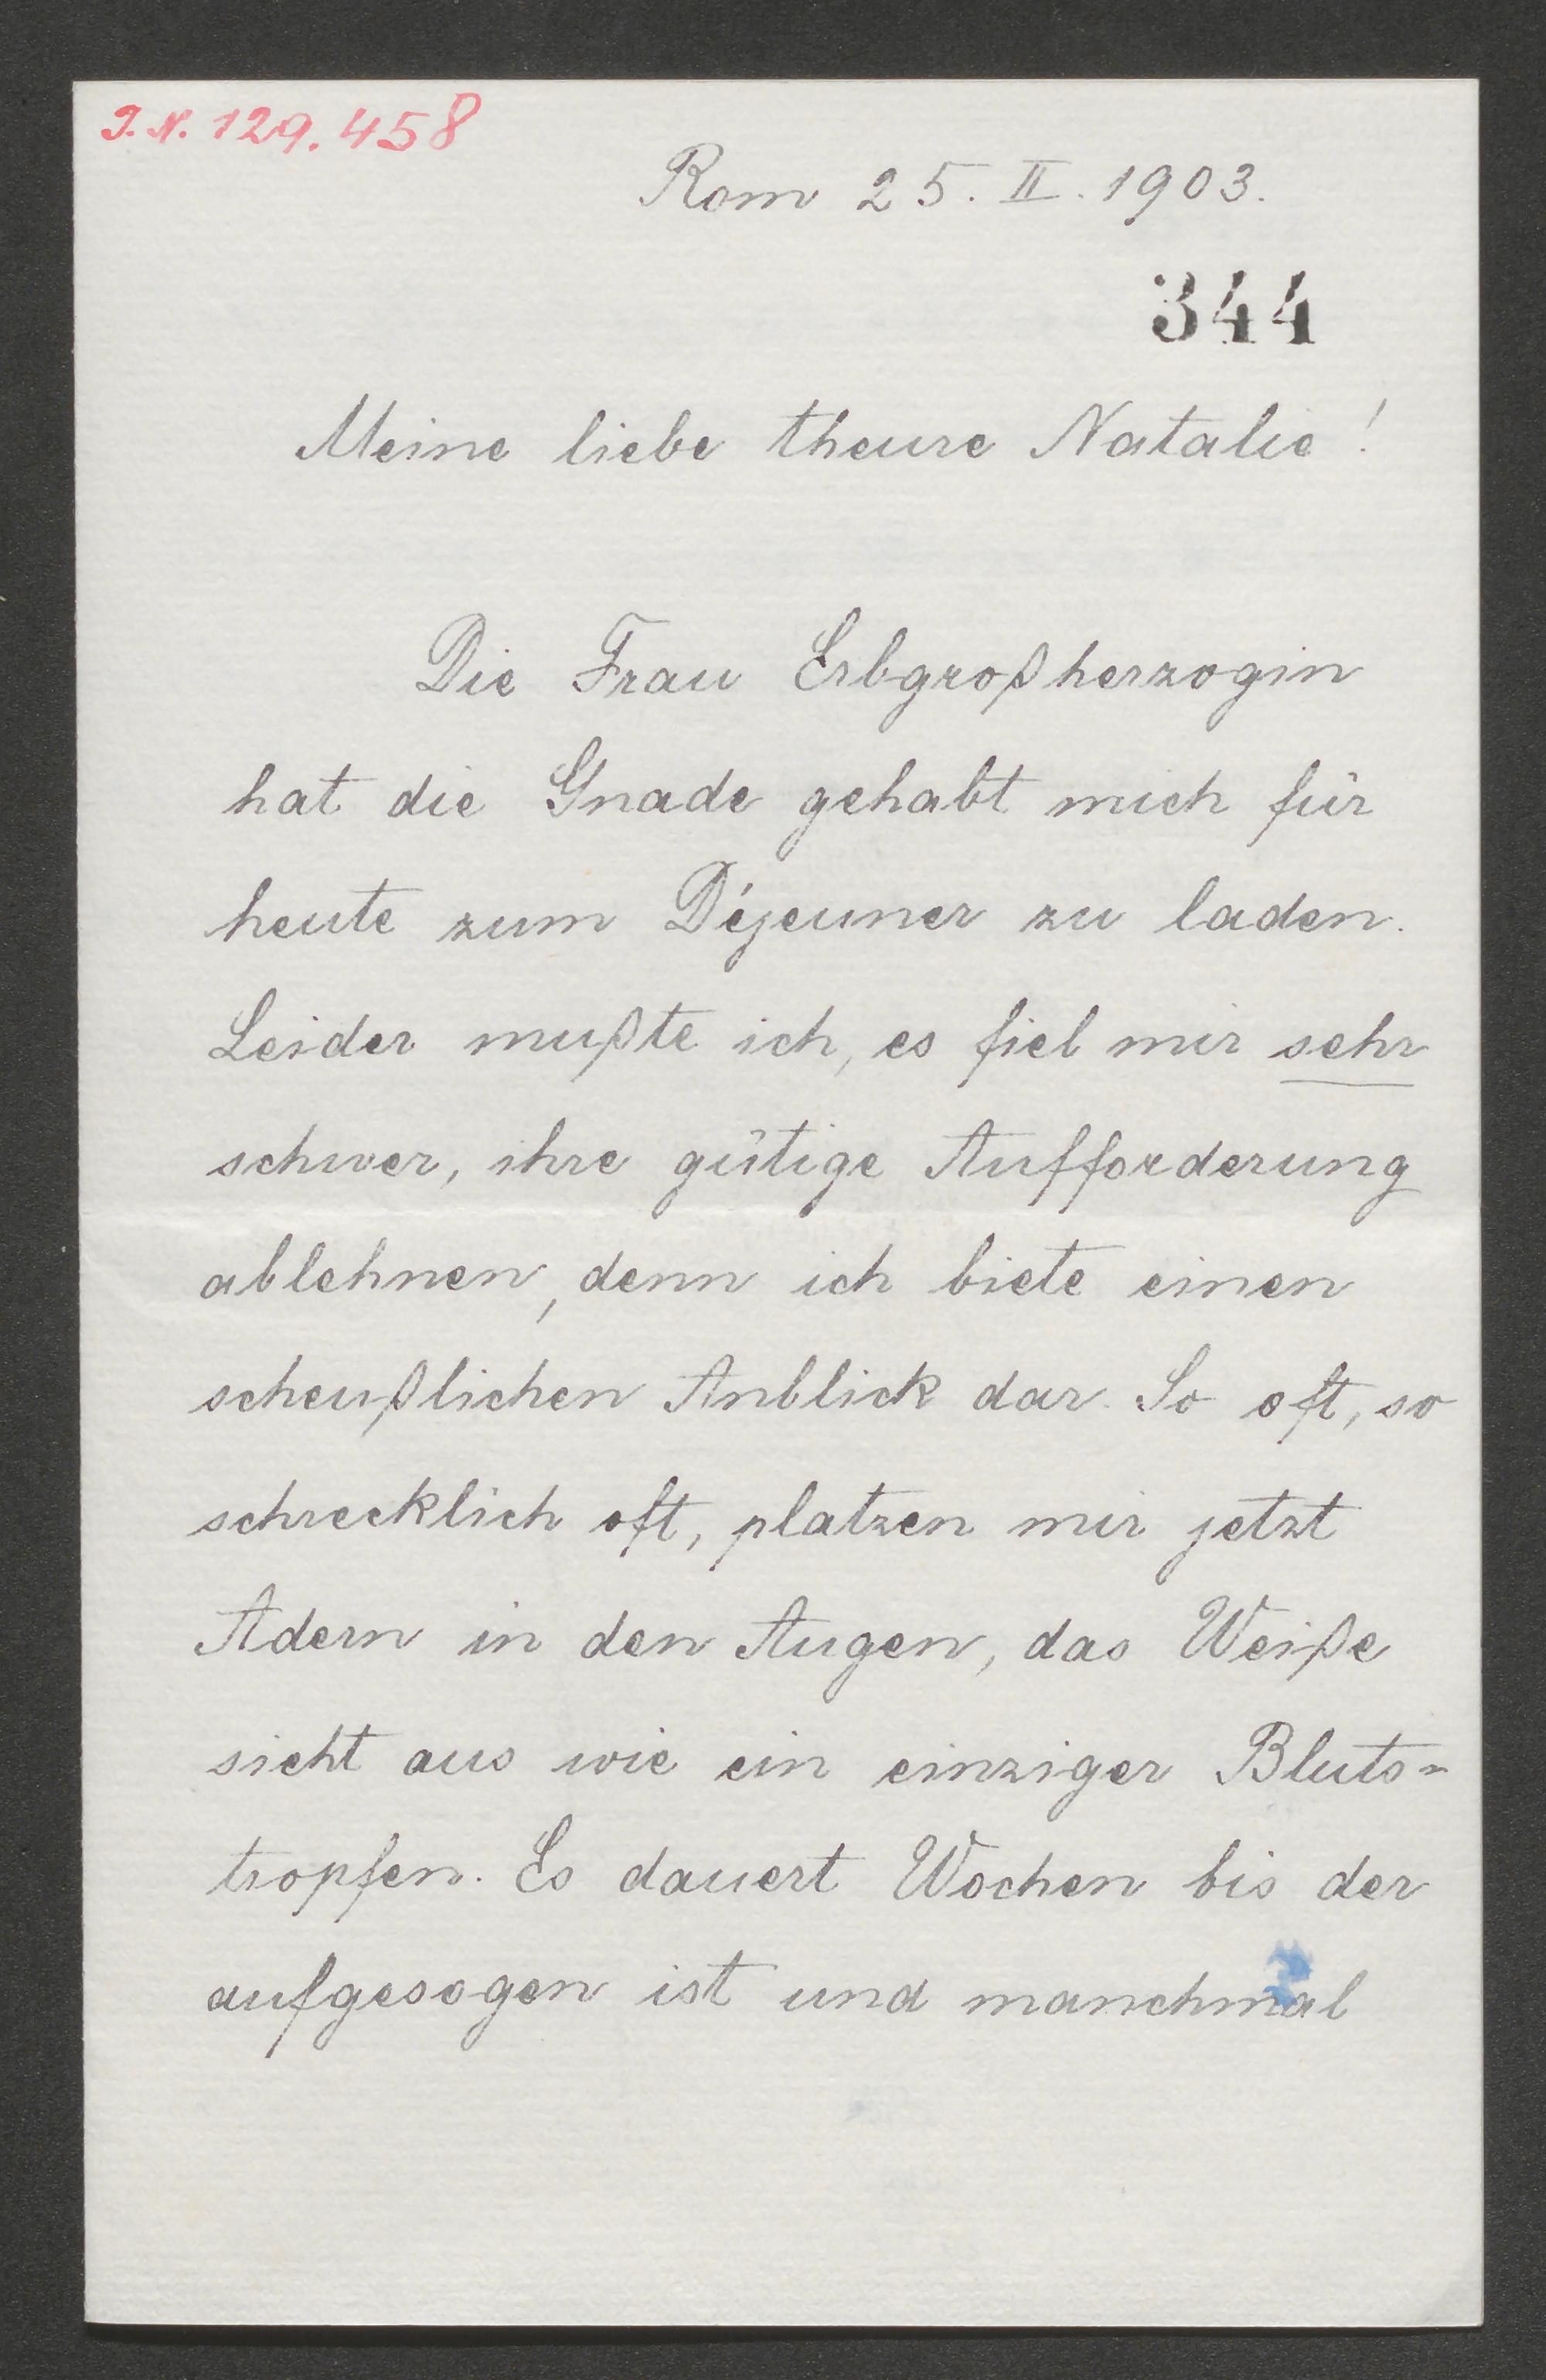 J. N. 129.458
Rom 25. II. 1903.
344
Meine liebe theure Natalie!
Die Frau Erbgroßherzogin
hat die Gnade gehabt mich für
heute zum Déjeuner zu laden.
Leider mußte ich, es fiel mir sehr
schwer, ihre gütige Aufforderung
ablehnen, denn ich biete einen
scheußlichen Anblick dar. So oft, so
schrecklich oft, platzen mir jetzt
Adern in den Augen, das Weiße
sieht aus wie ein einziger Bluts=
tropfen. Es dauert Wochen bis der
aufgesogen ist und manchmal